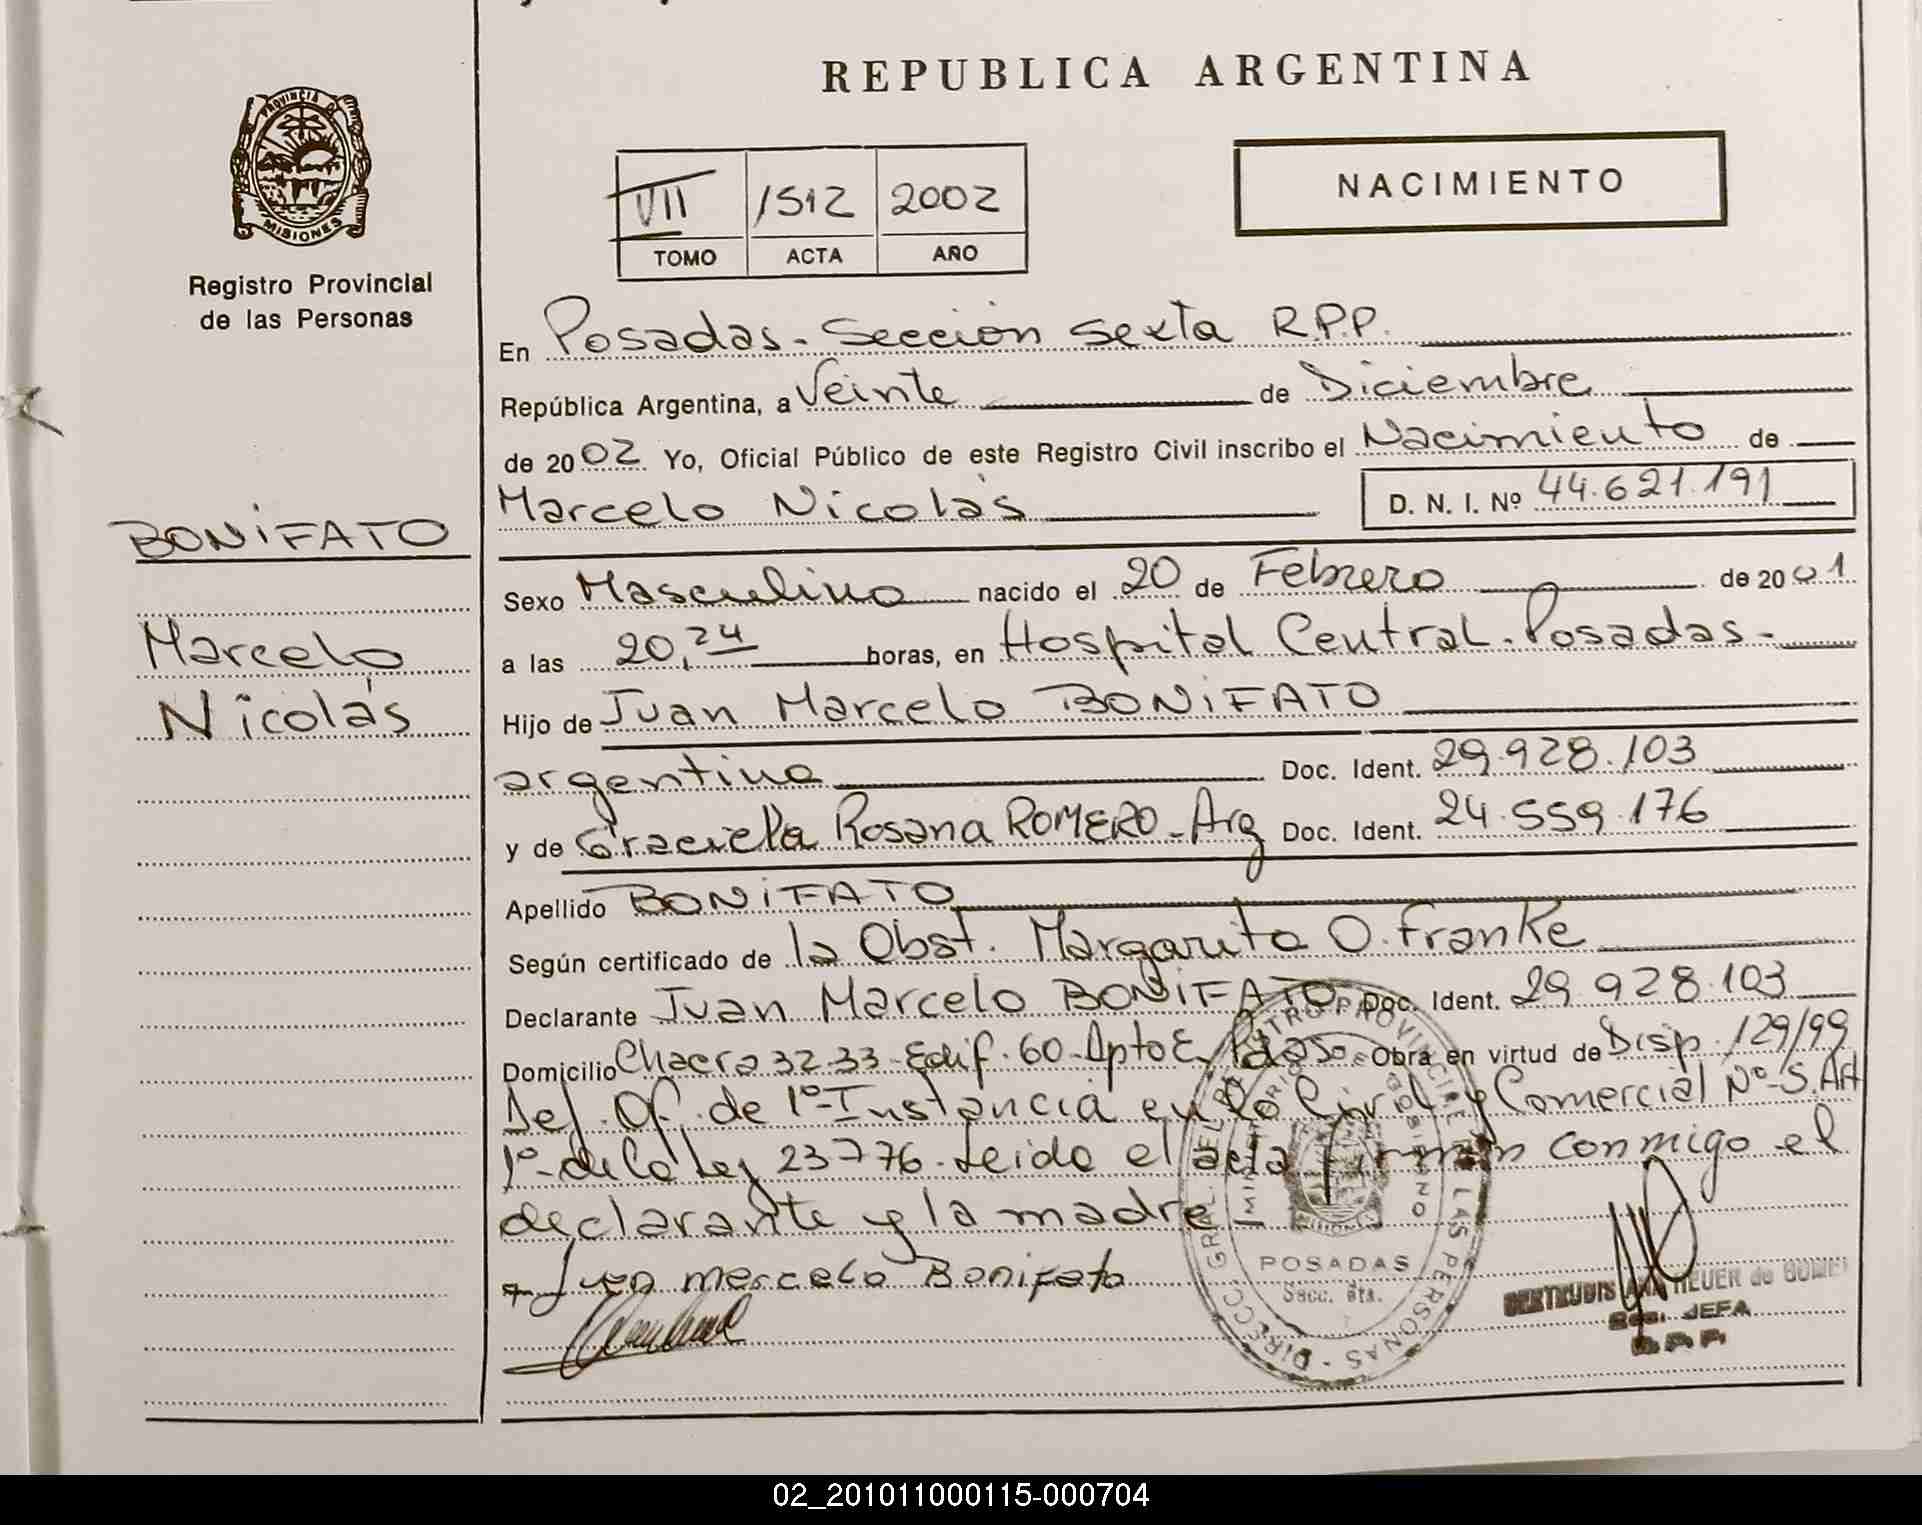 REPUBLICA ARGENTINA
PROVINCIA DE
MISIONES
Registro Provincial
de las Personas
VII 1512 2002
TOMO ACTA AÑO
NACIMIENTO
En Posadas - Sección Sexta R.P.P.
República Argentina, a Veinte de Diciembre
de 2002 Yo, Oficial Público de este Registro Civil inscribo el Nacimiento de
Marcelo Nicolás D. N. I. Nº 44.621.191
BONIFATO
Marcelo
Nicolás
Sexo Masculino nacido el 20 de Febrero de 2001
a las 20,24 horas, en Hospital Central - Posadas -
Hijo de Juan Marcelo BONIFATO
argentino Doc. Ident. 29.928.103
y de Graciela Rosana ROMERO - Arg Doc. Ident. 24.559.176
Apellido BONIFATO
Según certificado de la Obst. Margarita O. Franke
Declarante Juan Marcelo BONIFATO Doc. Ident. 29.928.103
Domicilio Chacra 32-33 - Edif. 60 - Apto E, Obra en virtud de Disp. 129/99
Def. Of. de 1º Instancia en lo Civil y Comercial Nº 5. Art
1º - de la Ley 23776 - Leida el acta firman conmigo el
declarante y la madre
Juan Marcelo Bonifato
DIRECC. GRAL. DEL REGISTRO PROVINCIAL DE LAS PERSONAS
POSADAS
Secc. 6ta.
GERTRUDIS ANA HEUER de GOMEZ
JEFA
R.P.P.
02_201011000115-000704